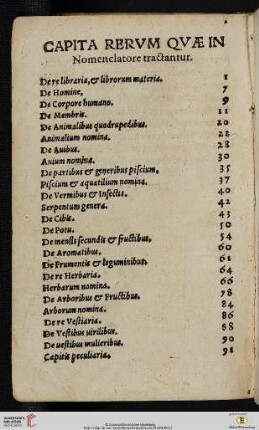 CAPITA RERVM QVÆ IN
Nomenclatore tractantur.
De re libraria, & librorum materia. 1
De Homine, 7
De Corpore humano. 9
De Membris. 11
De Animalibus quadrupedibus. 20
Animalium nomina. 22
De Auibus. 28
Auium nomina. 30
De partibus & generibus piscium, 35
Piscium & aquatilium nomina. 37
De Vermibus & Insectis. 40
Serpentum genera. 42
De Cibis. 43
De Potu. 50
De mensis secundis & fructibus, 54
De Aromatibus. 60
De Frumentis & leguminibus. 61
De re Herbaria. 64
Herbarum nomina. 66
De Arboribus & Fructibus. 78
Arborum nomina. 84
De re Vestiaria. 86
De Vestibus uirilibus. 88
De uestibus mulieribus. 90
Capitis peculiaria. 91